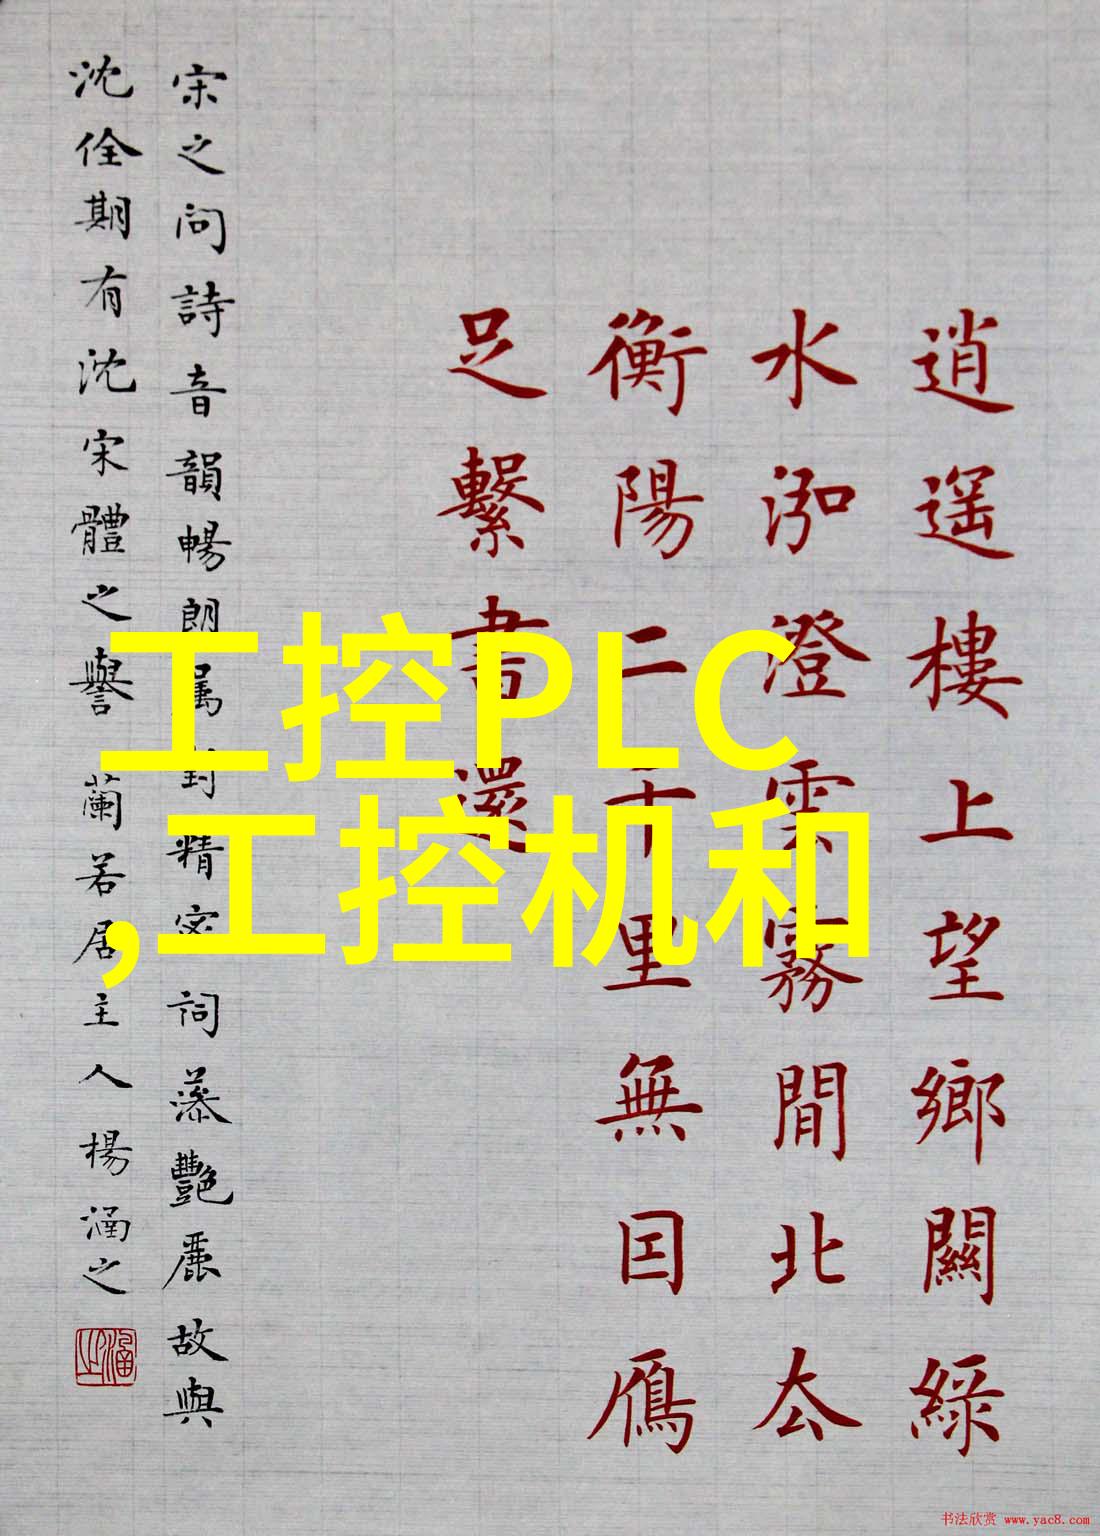 逍遥樓上望鄉關綠
水泓澄雲霧間北厺
衡陽二千里無囙鴈
足繫書還
宋之问詩音韻暢朗属對精密詞藻艷麗故與
沈佺期有沈宋體之譽 蘭若居主人楊涵之
工控PLC
,工控机和
书法欣赏 www.yac8.com